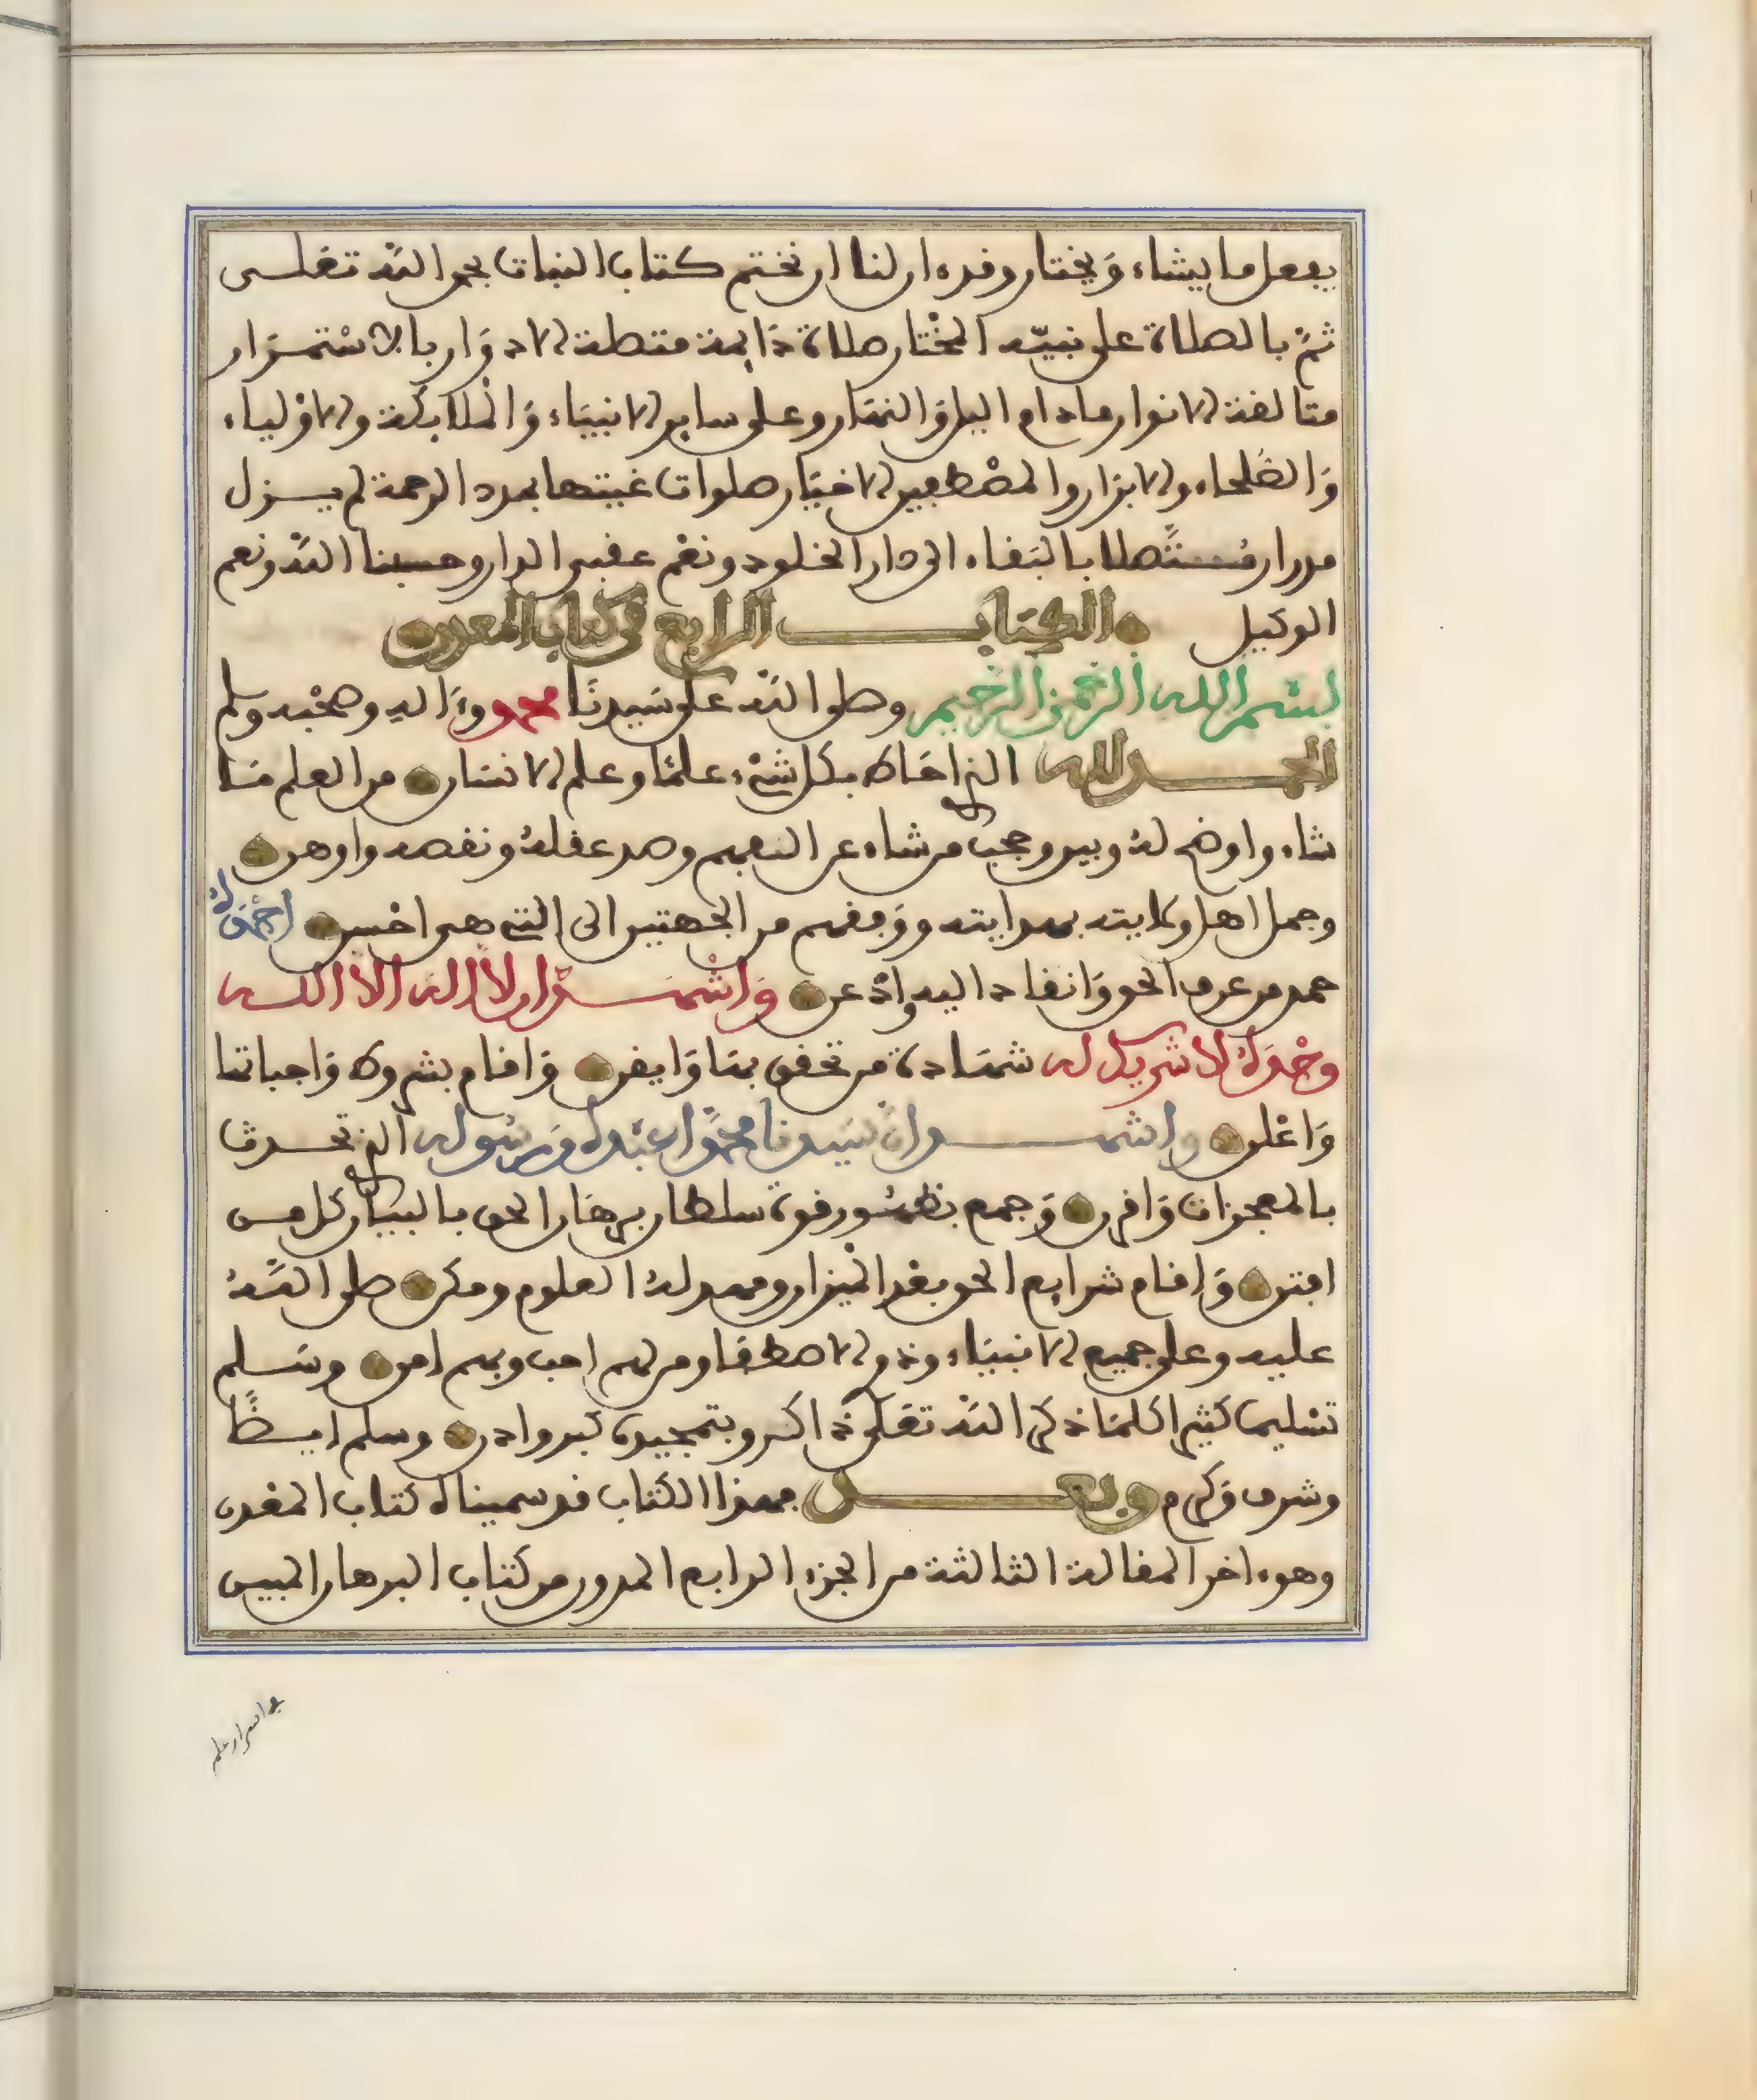 يفعل ما يشاء وَيختار وقد ءان لنا ان نختم كتاب النبات بحمد اللَّه تعَلى
ثمّ بالصلاة على نبيّه المخْتار صلاة دَايمة متصلة الادوَار بالاسْتمرَار
متالفة الانوار ما دام اليل وَالنهَار وعلى ساير الانبيَاء وَالملَايكة والاوْلياء
وَالصّلحاء والابرَار والمصْطفين الاخيَار صلوات غيثها بمدد الرحمة لم يزل
مدرار متَّصلا بالبَقاء الى دار الخلود ونعْم عقبى الدار وحسبنا اللَّه ونعم
الوكيل الكتَاب الرابع في كتاب المعدن
بسْم الله الرّحمٰن الرّحيم وصلى اللَّه على سَيدنَا محمد وءَاله وصحْبه وسلم
الحمد لله الذي احَاط بكل شيْء علمًا وعلم الانسَان من العلم مَا
شاء واوضح لهُ وبين وحجب من شاء عن التعميم وصد عقلهُ ونقصه واوهن
وجمل اهل ولايته بهدايته ووَفقهم من الجهتين الى التي هى احْسن احْمَدهُ
حمد من عرف الحق وَانقاد اليه واذْعن وَاشْهد ان لَّا اله الَّا الله
وحْدَهُ لا شريك له شهَادة من تحقق بهَا وَايقن وَاقام بشروط وَاجباتها
وَاعْلن واشهد انّ سَيدنا محمدًا عبْدهُ وَرسُوله الذي تحدى
بالمعجزات وَاقرن وَجمع بظهُور قوة سلطان برهَان الحق بالبيَان كل من
افتن وَاقام شرايع الحق بغد الميْزان ومهد لهُ العلوم ومكن صلى اللَّهُ
عليه وعلى جميع الانبيَاء وذوي الاصطفا ومن لهم احب وبهم امن وسَلم
تسْليما كثيرا كلمَا ذكر اللَّه تعَلى ذاكر وبتمجيده كبر واذن وسلم ايضًا
وشرف وَكرم وبعد فهذا الكتاب قد سميناه كتاب المعْدن
وهو ءاخر المقالة الثالثة من الجزء الرابع المدور من كتاب البرهان المبين